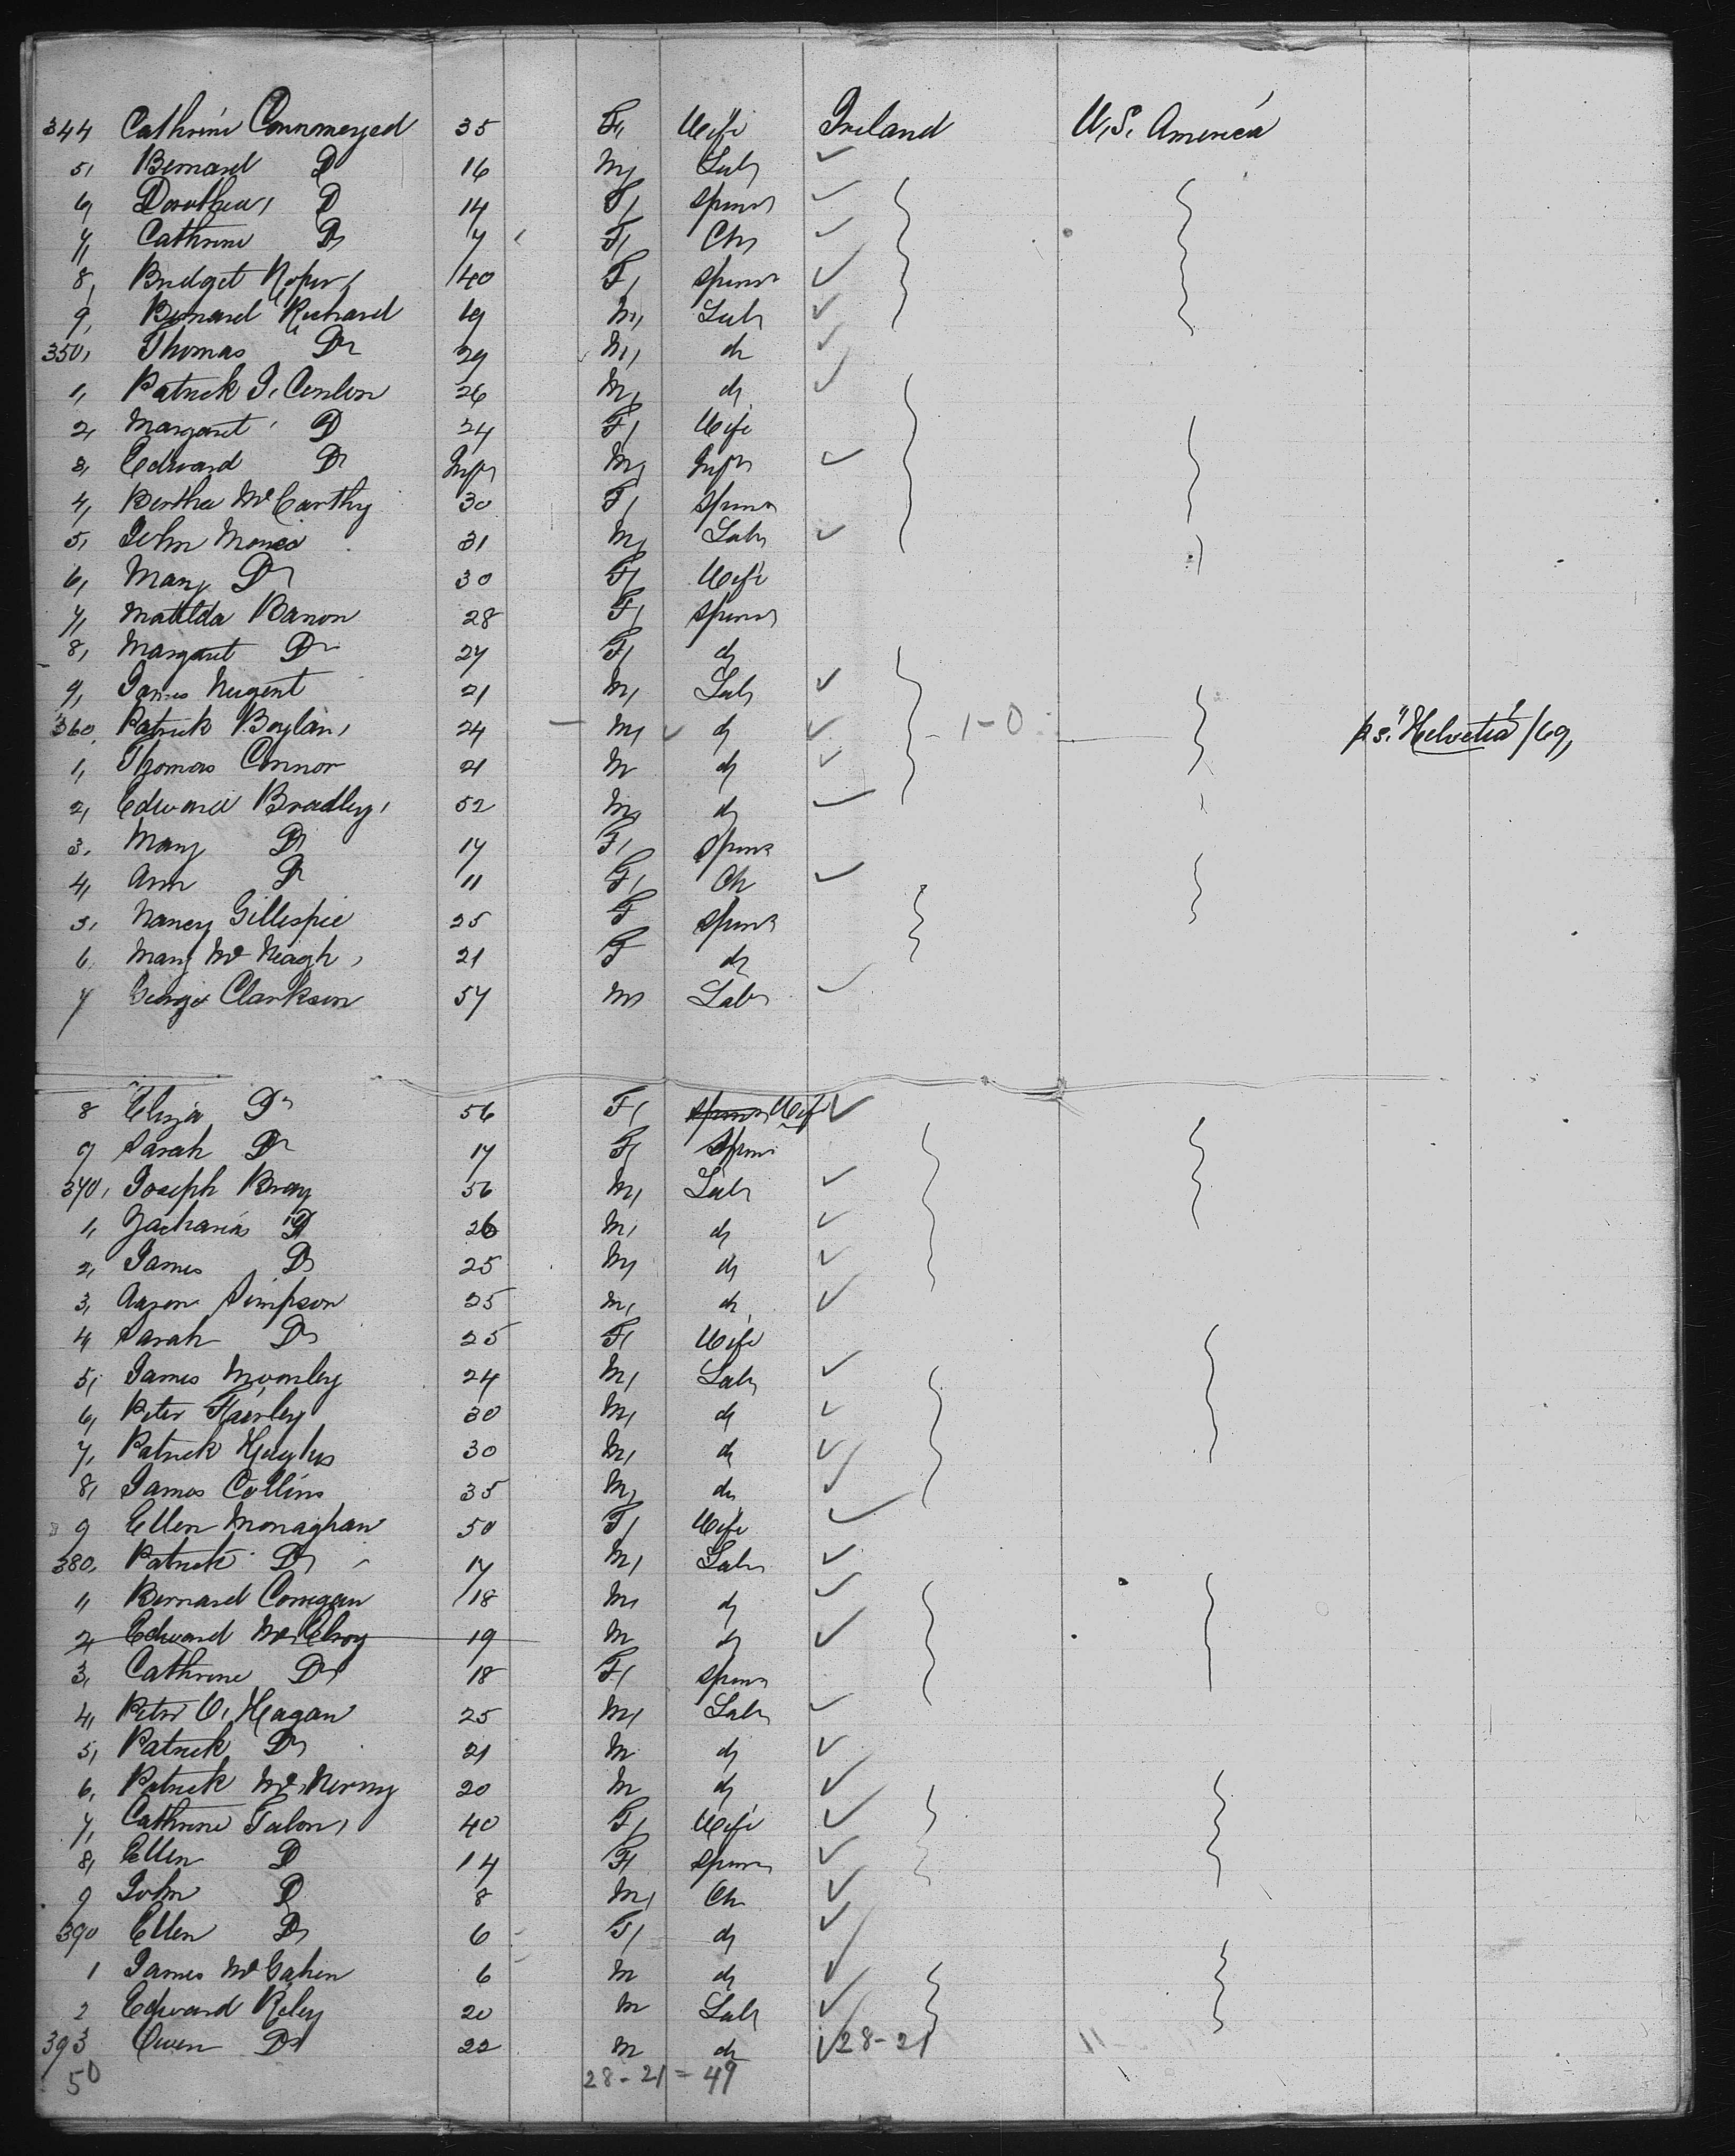 344 Cathrine Connmeyed 35 F, Wife Ireland U,S, America
5, Bernard D 16 M, Lab,
6, Dorothea, D 14 F, Spins
7, Cathrine D, 7 F, Ch,
8, Bridget 40 F, Spins
9, Bernard Richard 19 M, Lab,
350, Thomas Do 29 M, do
1, Patrick J. Conlon 26 M, do
2, Margaret D 24 F, Wife
3, Edward Do Inft M, Inft
4, Bertha McCarthy 30 F, Spins
5, John 31 M, Lab,
6, Mary Do 30 F, Wife
7, Matilda Barron 28 F, Spins
8, Margaret Do 27 F, do
9, James Nugent 21 M, Lab,
360, Patrick Boylan, 24 M, do 1-0 ps. "Helvetia"/69,
1, Thomas Connor 21 M do
2, Edward Bradley, 52 M, do
3, Mary Do 17 F, Spins
4, Ann Do 11 F, Ch
5, Nancy Gillespie 25 F Spins
6, Mary 21 F do
7 George Clarkson 57 M Lab
8 Eliza Do 56 F, Spins Wife
9 Sarah Do 17 F, Spins
370, Joseph Bray 56 M, Lab
1, Zacharia D 26 M, do
2, James Do 25 M, do
3, Aaron Simpson 25 M, do
4 Sarah Do 25 F, Wife
5, James 24 M, Lab,
6, Peter 30 M, do
7, Patrick Hughes 30 M, do
8, James Collins 35 M, do
9 Ellen Monaghan 50 F, Wife
380, Patrick Do 17 M, Lab
1, Bernard Corregan 18 M, do
2, Edward McElroy 19 M do
3, Cathrine Do 18 F, Spins
4, Peter O, Hagan 25 M, Lab
5, Patrick Do 21 M do
6, Patrick 20 M do
7, Cathrine 40 F, Wife
8, Ellen D 14 F, Spins
9 John D 8 M, Ch
390 Ellen Do 6 F, do
1 James McGahen 6 M do
2 Edward Reley 20 M Lab
393 Owen Do 22 M do 28-21 11
50 28-21=49